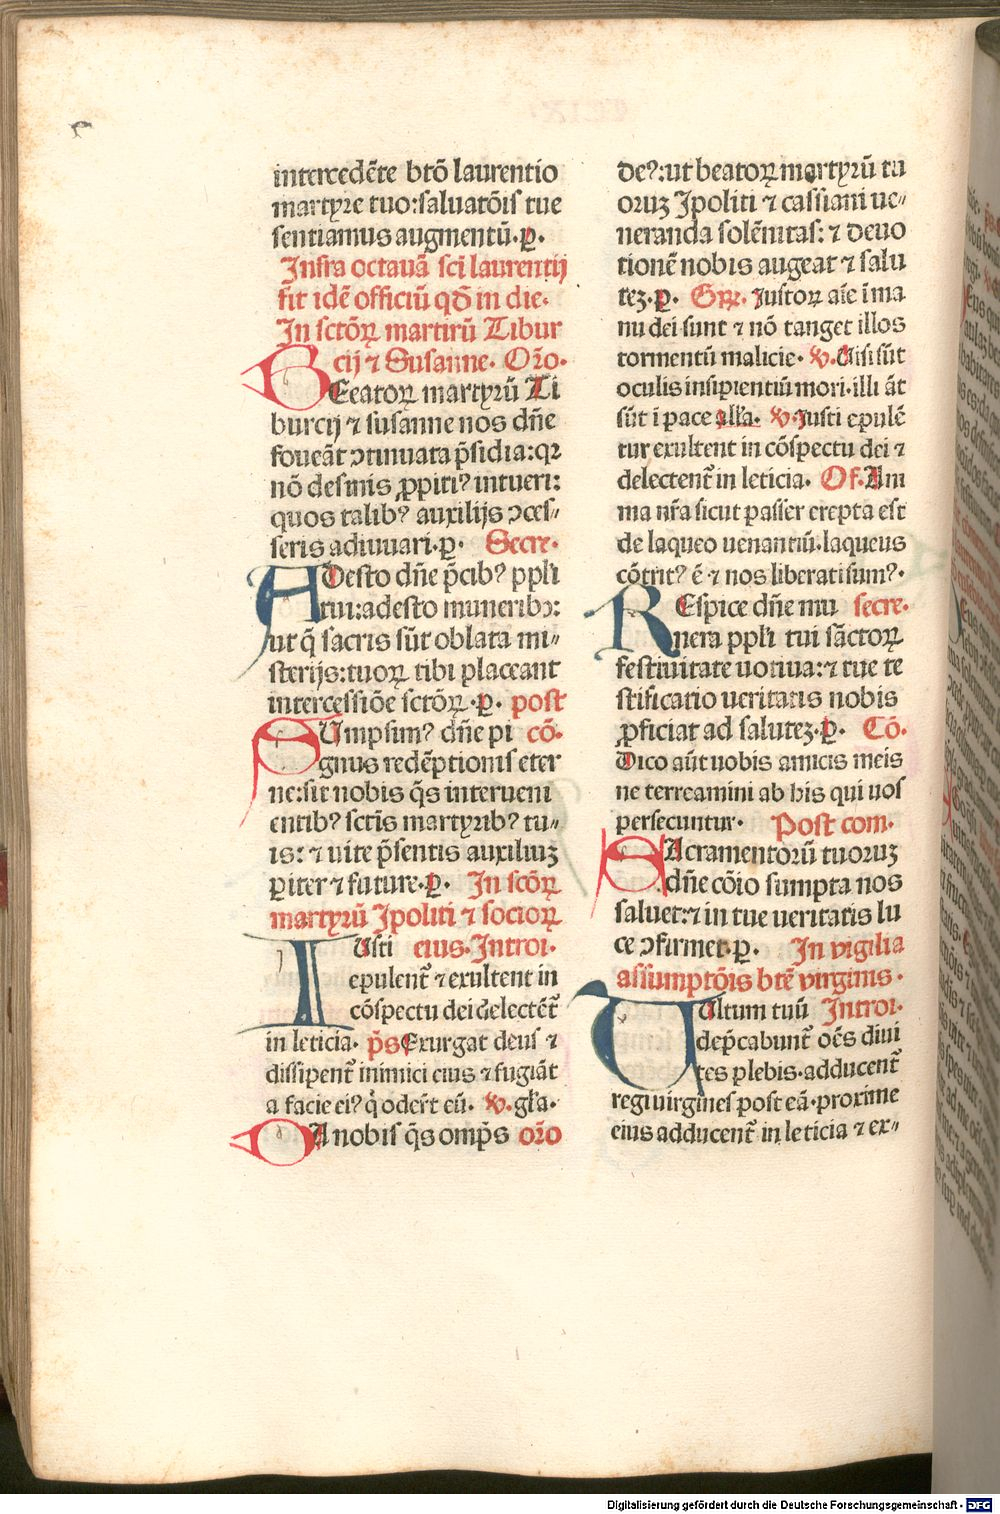 intercedēte btō laurentio
martyre tuo:saluatōis tue
sentiamus augmentū.ꝑ.
Infra octauā sci laurentij
fit idē officiū qď in die.
In sctōꝝ martirū Tibur
cij ⁊ Susanne. Orō.
BEeatoꝝ martyrū Ti
burcij ⁊ susanne nos dn̄e
foueāt ꝯtinuata p̄sidia:qꝛ
nō desinis ꝓpitiꝰ intueri:
quos talibꝰ auxilijs ꝯces⸗
seris adiuuari.ꝑ. Secre.
ADesto dn̄e p̄cibꝰ ppl̄i
tui:adesto muneribꝫ:
ut q̄ sacris sūt oblata mi⸗
sterijs:tuoꝝ tibi placeant
intercessiōe sctōꝝ.ꝑ. post
SUmpsimꝰ dn̄e pi cō.
gnus redēptionis eter
ne:sit nobis q̄s interueni
entibꝰ sctīs martyribꝰ tu⸗
is: ⁊ uite p̄sentis auxiliuꝫ
ꝑiter ⁊ future.ꝑ. In scōꝝ
martyrū Ipoliti ⁊ socioꝝ
IUsti eius.Introi.
epulent̄ ⁊ exultent in
cōspectu dei delectēt̄
in leticia. p̄s Exurgat deus ⁊
dissipent̄ inimici eius ⁊ fugiāt
a facie eiꝰ q̇ oder̄t eū. ℣. gl̄a.
DA nobis q̄s omp̄s orō
deꝰ:ut beatoꝝ martyrū tu
oruꝫ Ipoliti ⁊ cassiani ue⸗
neranda solēnitas: ⁊ deuo
tionē nobis augeat ⁊ salu
teꝫ.ꝑ. Gꝛ̄. Iustoꝝ aīe ī ma
nu dei sunt ⁊ nō tanget illos
tormentū malicie. ℣. Uisi sūt
oculis insipientiū mori.illi āt
sūt ī pace all̄a. ℣. Iusti epulē
tur exultent in cōspectu dei ⁊
delectent̄ in leticia. Of. Ani
ma nr̄a sicut passer erepta est
de laqueo uenantiū.laqueus
cōtritꝰ ē ⁊ nos liberati sumꝰ.
REspice dn̄e mu secre.
nera ppl̄i tui sāctoꝝ
festiuitate uotiua: ⁊ tue te
stificatio ueritatis nobis
ꝓficiat ad saluteꝫ.ꝑ. Cō.
Dico aūt uobis amicis meis
ne terreamini ab his qui uos
persecuntur. Post com.
SAcramentorū tuoruꝫ
dn̄e cōio sumpta nos
saluet: ⁊ in tue ueritatis lu
ce ꝯfirmet.ꝑ. In vigilia
assumptōis btē virginis.
UUltum tuū Introi.
dep̄cabunt̄ oēs diui
tes plebis.adducent̄
regi uirgines post eā.proxime
eius adducent̄ in leticia ⁊ ex⸗
Digitalisierung gefördert durch die Deutsche Forschungsgemeinschaft - DFG